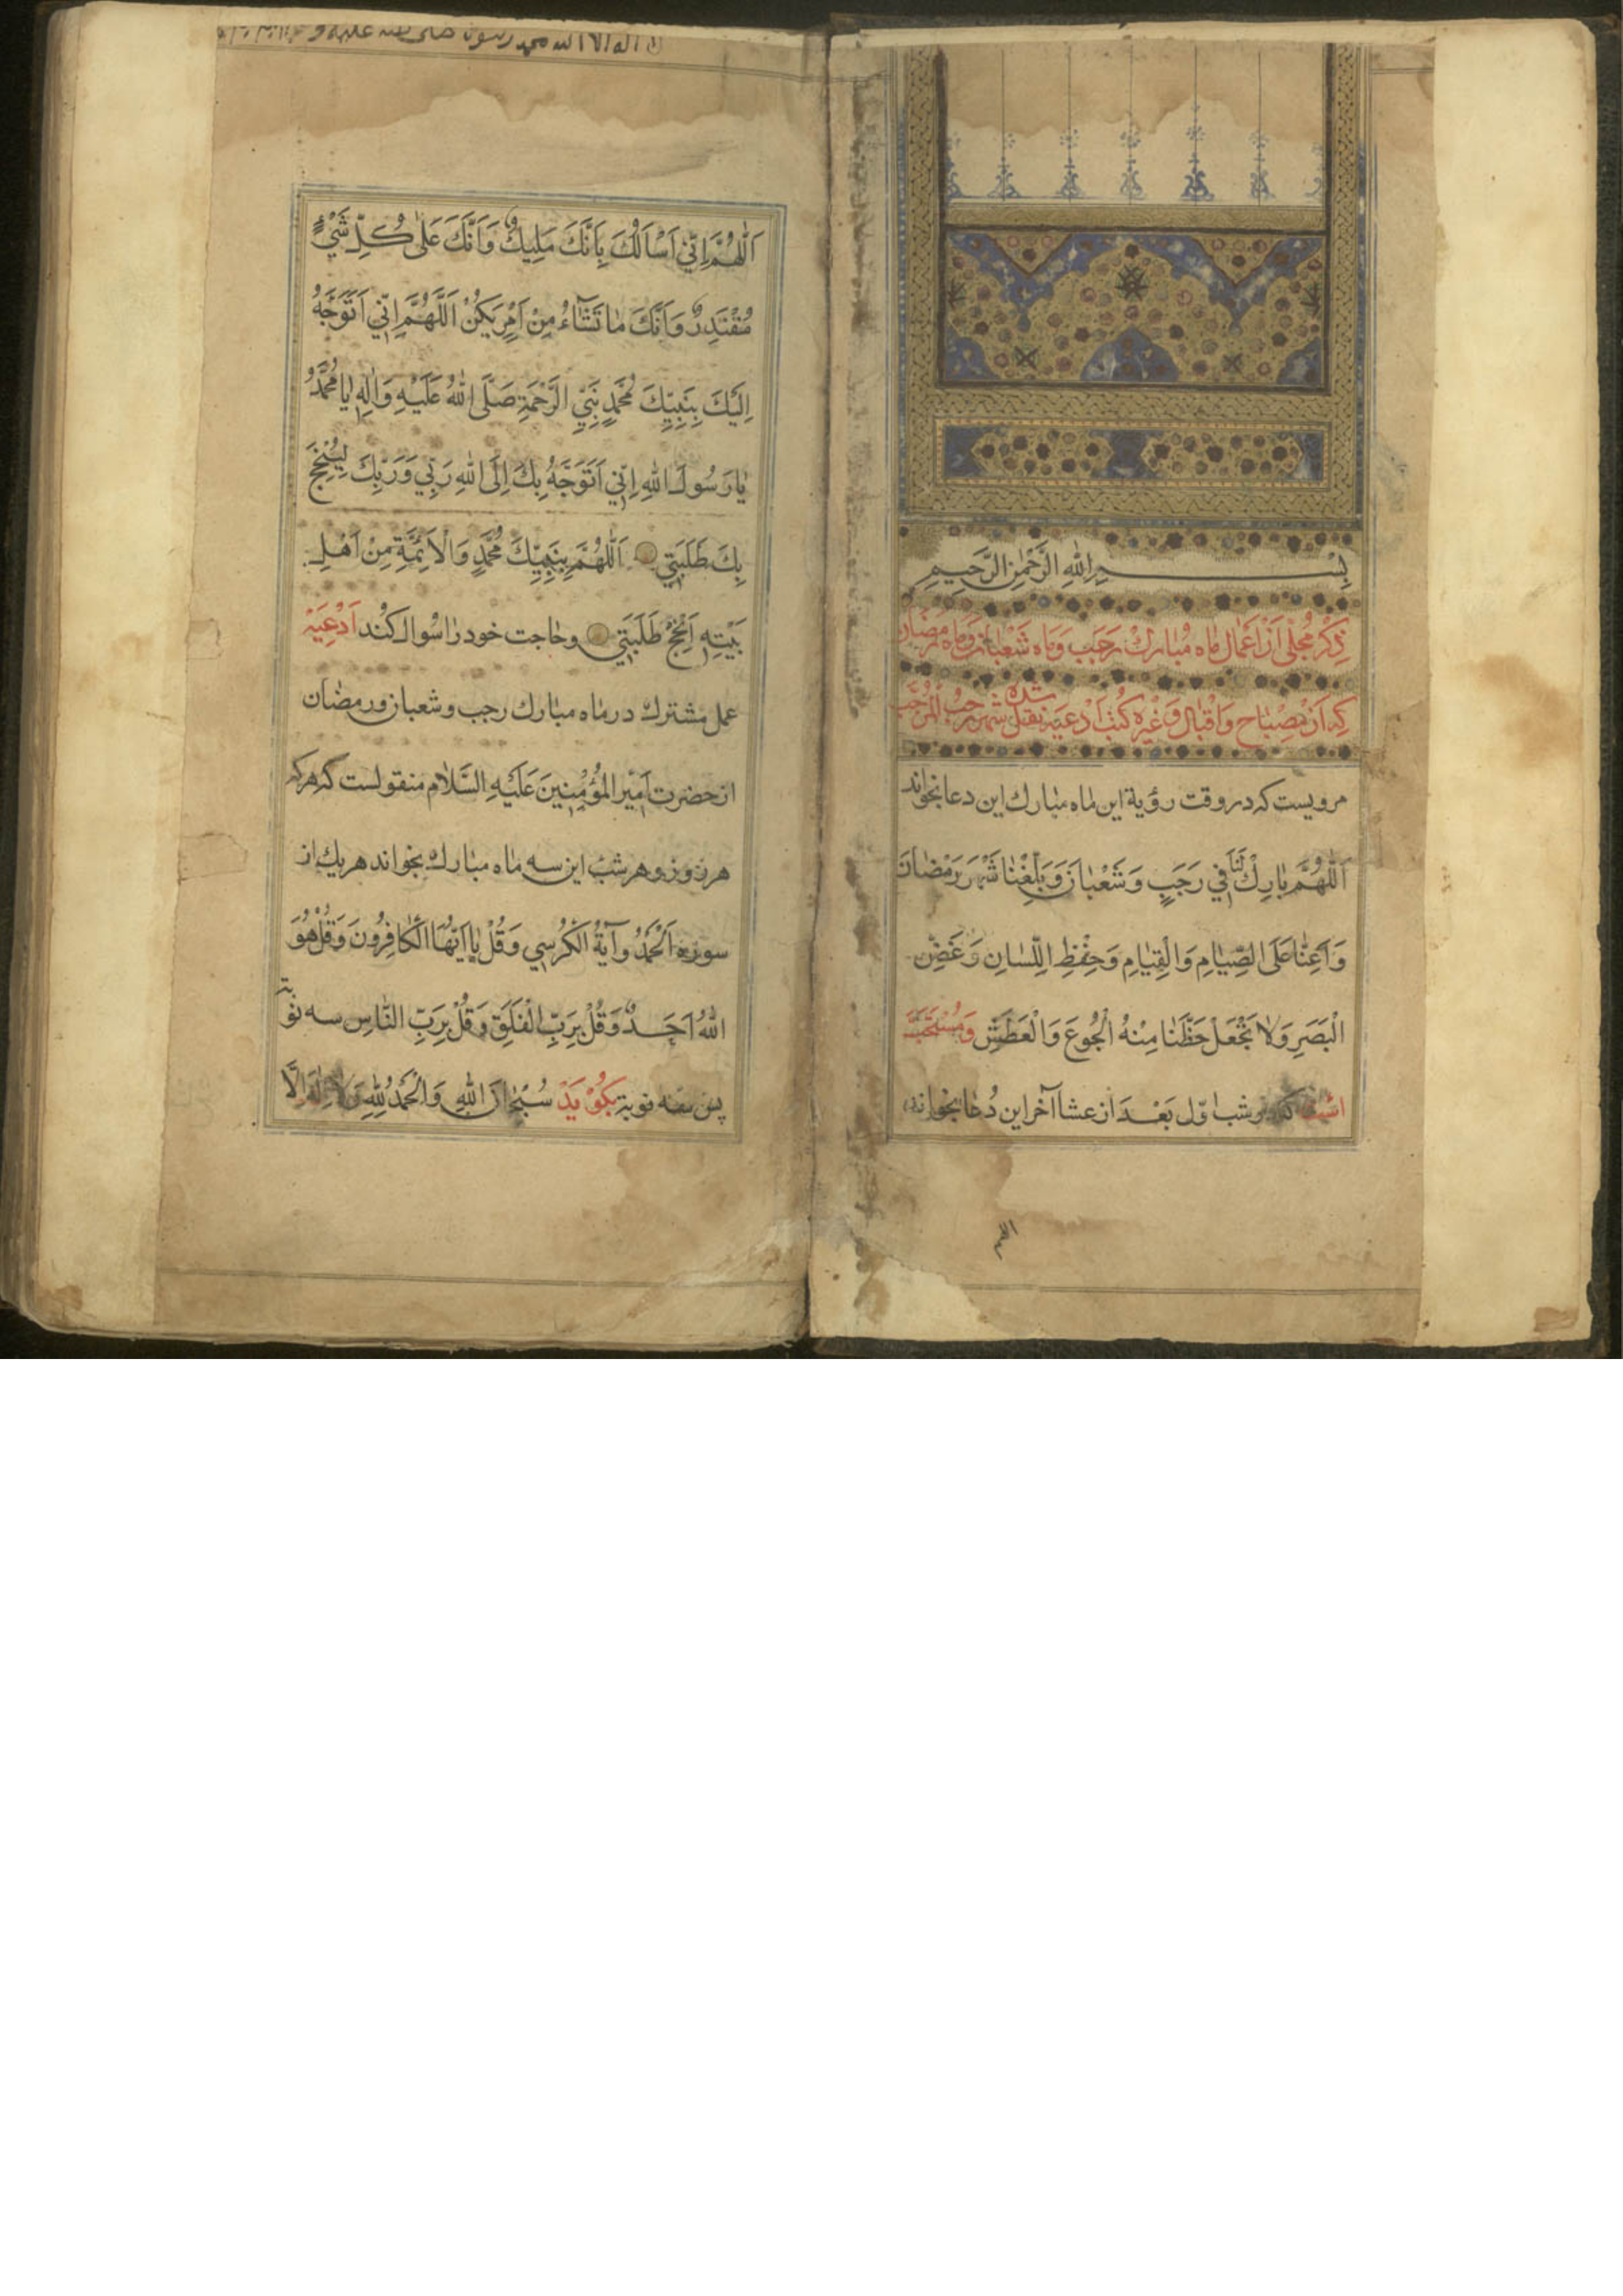 بِسْمِ اللهِ الرَّحْمٰنِ الرَّحِيمِ
ذِكْرِ مُجْمَلْی اَزْ اَعْمٰالِ مٰاه مُبٰارَكْ رَجَبَ وَمٰاه شَعْبٰانْ وَمٰاه رَمَضٰان
كِه اَزْ مِصْبٰاح وَاِقْبٰال وَغَيْرِه كُتُبْ اَدْعِيَه نَقْلْ شُدَه شَهْرِ رَجَبُ الْمُرَجَّبْ
مرويست كه در وقت رؤية اين مٰاه مبٰارك اين دعا بخواند
اَللّٰهُمَّ بٰارِكْ لَنٰا فِي رَجَبٍ وَشَعْبٰانَ وَبَلِّغْنٰا شَهْرَ رَمَضٰانَ
وَاَعِنّٰا عَلَى الصِّيٰامِ وَالْقِيٰامِ وَحِفْظِ اللِّسٰانِ وَغَضِّ
الْبَصَرِ وَلاٰ تَجْعَلْ حَظَّنٰا مِنْهُ الْجُوعَ وَالْعَطَشَ وَمُسْتَحَبّ
است كه در شب اوّل بَعْدَ از عشا آخر اين دُعٰا بخواند
اللهم
لا اله الا الله محمد رسول الله صلى الله عليه و
اَللّٰهُمَّ اِنّي اَسْاَلُكَ بِاَنَّكَ مَلِيكٌ وَاَنَّكَ عَلىٰ كُلِّ شَيْءٍ
مُقْتَدِرٌ وَاَنَّكَ مٰا تَشٰٓاءُ مِنْ اَمْرٍ يَكُنْ اَللّٰهُمَّ اِنّي اَتَوَجَّهُ
اِلَيْكَ بِنَبِيِّكَ مُحَمَّدٍ نَبِيِّ الرَّحْمَةِ صَلَّى اللهُ عَلَيْهِ وَاٰلِهِ يٰا مُحَمَّدُ
يٰا رَسُولَ اللهِ اِنّي اَتَوَجَّهُ بِكَ اِلَى اللهِ رَبّي وَرَبِّكَ لِيُنْجِحَ
بِكَ طَلِبَتي اَللّٰهُمَّ بِنَبِيِّكَ مُحَمَّدٍ وَالْاَئِمَّةِ مِنْ اَهْلِ
بَيْتِهِ اَنْجِحْ طَلِبَتي وحٰاجت خود رٰا سُوٰال كُند اَدْعِيَه
عمل مشترك در مٰاه مبٰارك رجب وشعبان ورمضٰان
از حضرت اَمِيْرِ المُؤْمِنينَ عَلَيْهِ السَّلاٰم منقولست كه هركه
هر روز و هر شب اين سه مٰاه مبٰارك بخواند هر يك از
سوره اَلْحَمْدُ وآيَةُ الْكُرْسِي وَقُلْ يٰا اَيُّهَا الْكٰافِرُونَ وَقُلْ هُوَ
اللهُ اَحَدٌ وَقُلْ بِرَبِّ الْفَلَقِ وَقُلْ بِرَبِّ النّٰاسِ سه نوبة
پس سه نوبة بِكُوْيَدْ سُبْحٰانَ اللهِ وَالْحَمْدُ لِلّٰهِ وَلاٰ اِلٰهَ اِلَّا